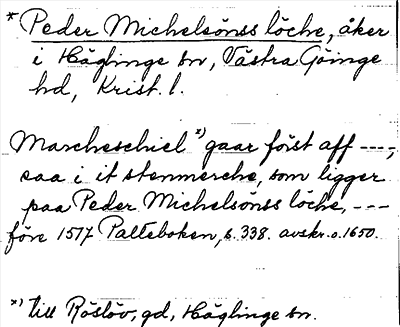 * Peder Michelsönss löche, åker
i Häglinge sn, Västra Göinge
hd, Krist. l.
Marcheschiel *) gaar först aff ----,
saa i it stenmerche, som ligger
paa Peder Michelsönss löche, ---
före 1577 Palteboken, s. 338. avskr. o. 1650.
*) till Röslöv, gd, Häglinge sn.